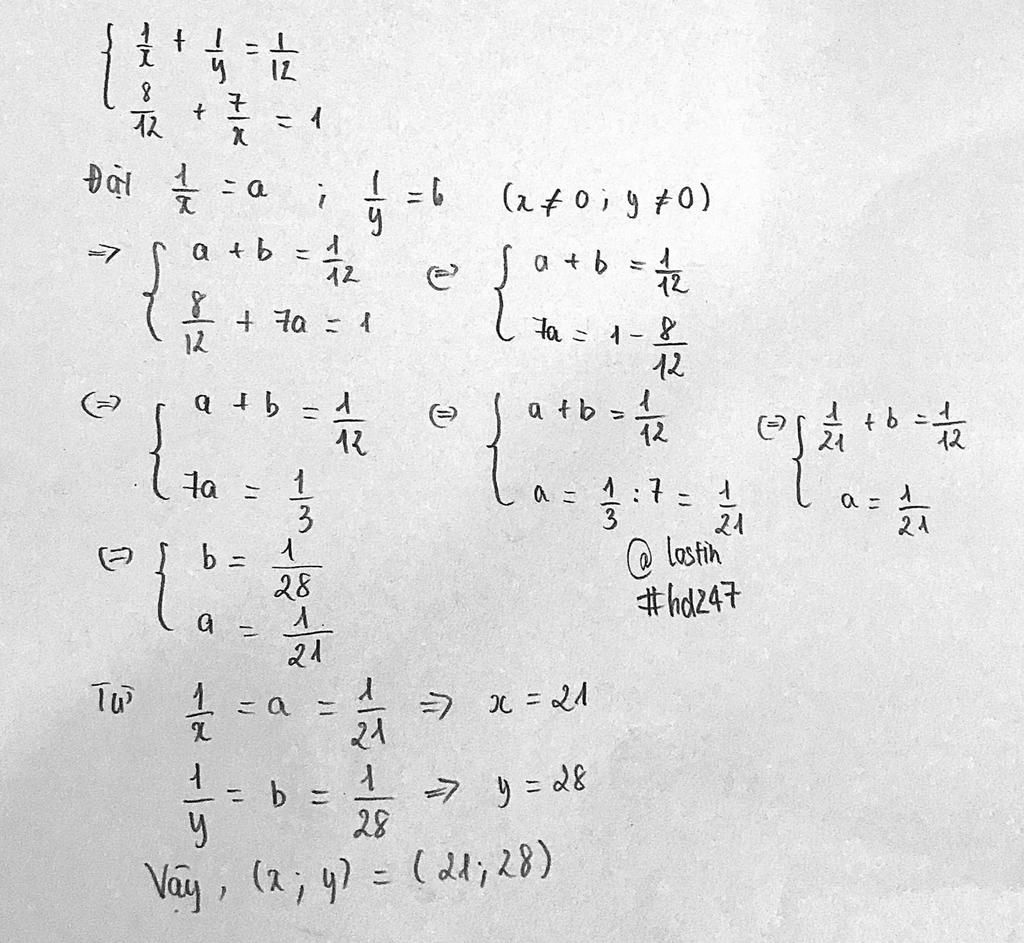 { 1/x + 1/y = 1/12
8/12 + 7/x = 1
Đặt 1/x = a ; 1/y = b (x ≠ 0 ; y ≠ 0)
=> { a + b = 1/12 <=> { a + b = 1/12
8/12 + 7a = 1 7a = 1 - 8/12
<=> { a + b = 1/12 <=> { a + b = 1/12 <=> { 1/21 + b = 1/12
7a = 1/3 a = 1/3 : 7 = 1/21 a = 1/21
<=> { b = 1/28
a = 1/21
@ lostin
#hd247
Từ 1/x = a = 1/21 => x = 21
1/y = b = 1/28 => y = 28
Vậy, (x ; y) = (21 ; 28)